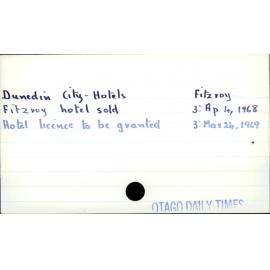 Dunedin City-Hotels Fitzroy
Fitzroy hotel sold 3: Ap 4, 1968
Hotel licence to be granted 3: Mar 24, 1969
OTAGO DAILY TIMES